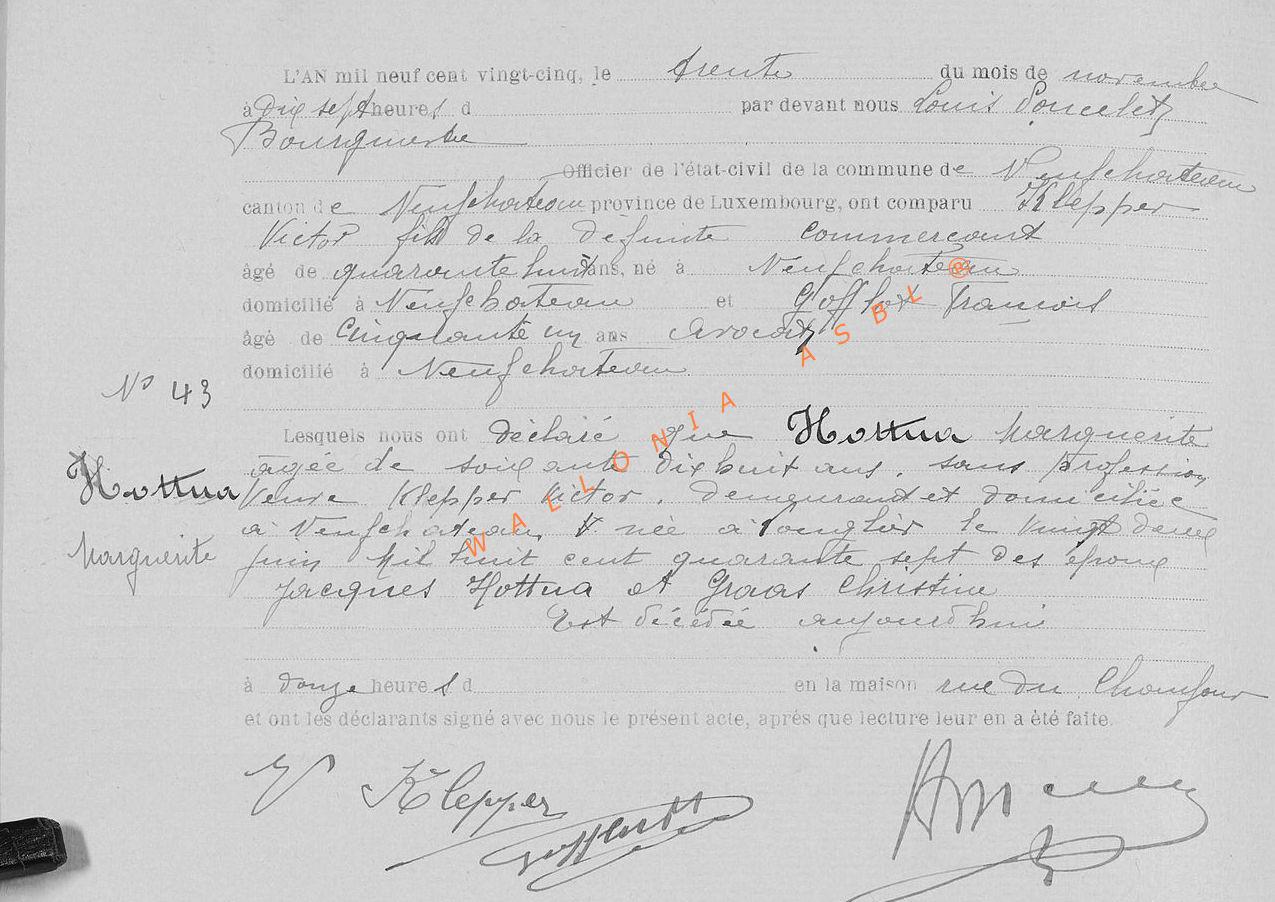 L'AN mil neuf cent vingt-cinq, le trente du mois de novembre
à Dix sept heures d par devant nous Louis Poncelet,
Bourgmestre
Officier de l'état-civil de la commune de Neufchateau
canton de Neufchateau province de Luxembourg, ont comparu Klepper
Victor fils de la défunte commercant
âgé de quarante huit ans, né à Neufchateau
domicilié à Neufchateau et Gofflot Francois
âgé de Cinquante un ans avocat,
domicilié à Neufchateau
N° 43
Lesquels nous ont déclaré que Hottua Marguerite
agée de soixante dix huit ans, sans profession,
Hottua
Veuve Klepper Victor, demeurant et domiciliée
à Neufchateau, née à Longlier le vingt deux
Marguerite
Juin Mil huit cent quarante sept des époux
Jacques Hottua et Graas Christine
Est décédée aujourdhui
à douze heures d en la maison rue du Chaufour
et ont les déclarants signé avec nous le présent acte, après que lecture leur en a été faite.
V Klepper
Gofflot
WALLONIA ASBL ®